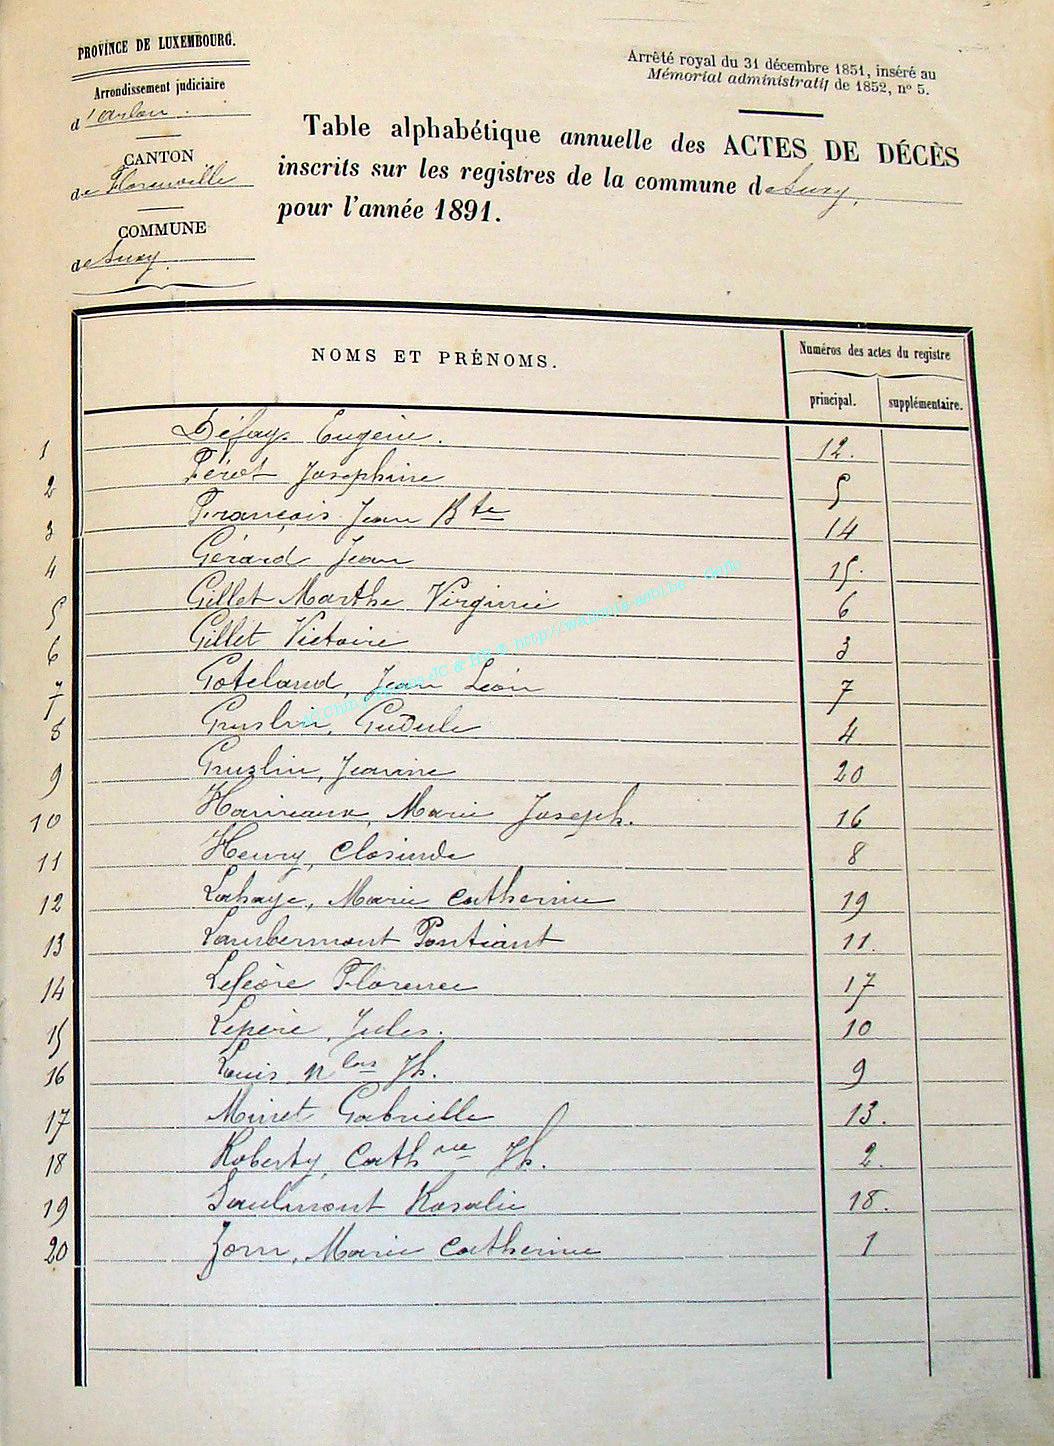 PROVINCE DE LUXEMBOURG.
Arrondissement judiciaire
d'Arlon.
CANTON
de Florenville
COMMUNE
de Suxy.
Arrêté royal du 31 décembre 1851, inséré au
Mémorial administratif de 1852, n° 5.
Table alphabétique annuelle des ACTES DE DÉCÈS
inscrits sur les registres de la commune de Suxy.
pour l'année 1891.
NOMS ET PRÉNOMS.
Numéros des actes du registre
principal. supplémentaire.
1 Défays Eugénie. 12.
2 Férot Joséphine 5
3 François Jean Bte 14
4 Gérard Jean 15.
5 Gillet Marthe Virginie 6
6 Gillet Victoire 3
7 Goteland, Jean Léon 7
8 Gruslin, Gudule 4
9 Gruzlin, Jeanne 20
10 Marie Joseph. 16
11 Henry, Closinde 8
12 Lahaye, Marie Catherine 19
13 Laubermont Pontiant 11.
14 Lefèvre Florence 17
15 Lepère, Jules. 10
16 Louis nlas Jh. 9
17 Minet Gabrielle 13.
18 Roberty, Cathne Jh. 2.
19 Saulmont Rosalie 18.
20 Zorn, Marie Catherine 1